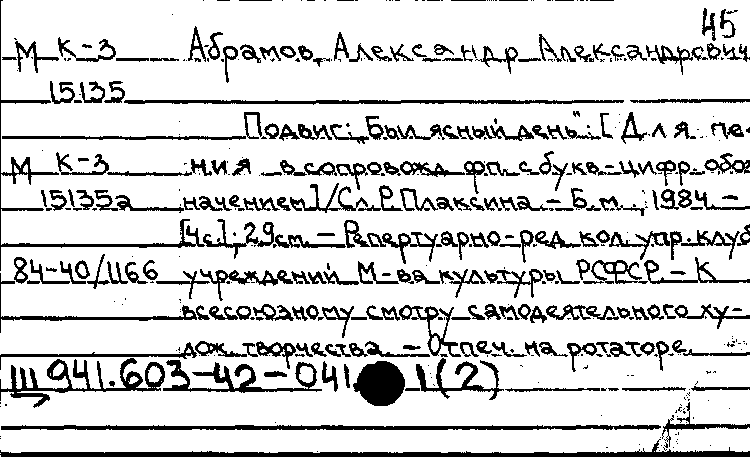 45
М К-3 Абрамов, Александр Александрович
15135
Подвиг: „Был ясный день": [Для пе-
М К-3 ния в сопровожд. фп. с букв.-цифр. обоз
15135а начением]/Сл. Р. Плаксина. – Б. м., 1984. –
[4с.]; 29см. – Репертуарно-ред. кол. упр. клуб
84-40/1166 учреждений М-ва культуры РСФСР. – К
всесоюзному смотру самодеятельного ху-
дож. творчества. – Отпеч. на ротаторе.
Ш 941.603-42-041. 1(2)